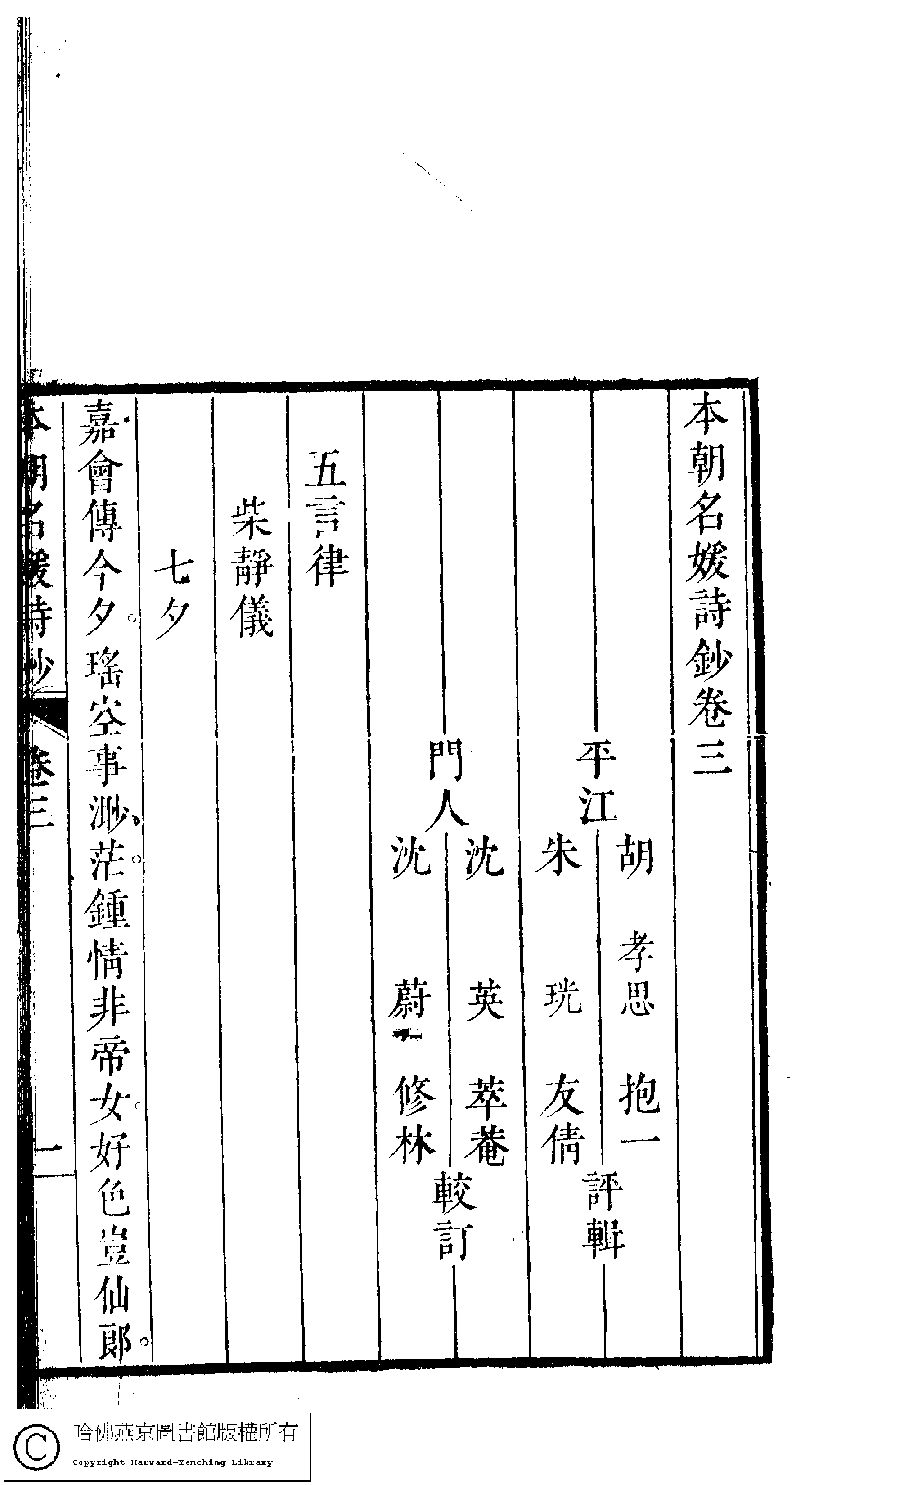 本朝名媛詩鈔卷三
平江
胡 孝思 抱一
朱 珖 友倩
評輯
門人
沈 英 萃菴
沈 蔚 修林
較訂
五言律
柴靜儀
七夕
嘉會傳今夕。瑤空事渺茫。鍾情非帝女。好色豈仙郞。
本朝名媛詩鈔 卷三 一
哈佛燕京圖書館版權所有
Copyright Harvard-Yenching Library